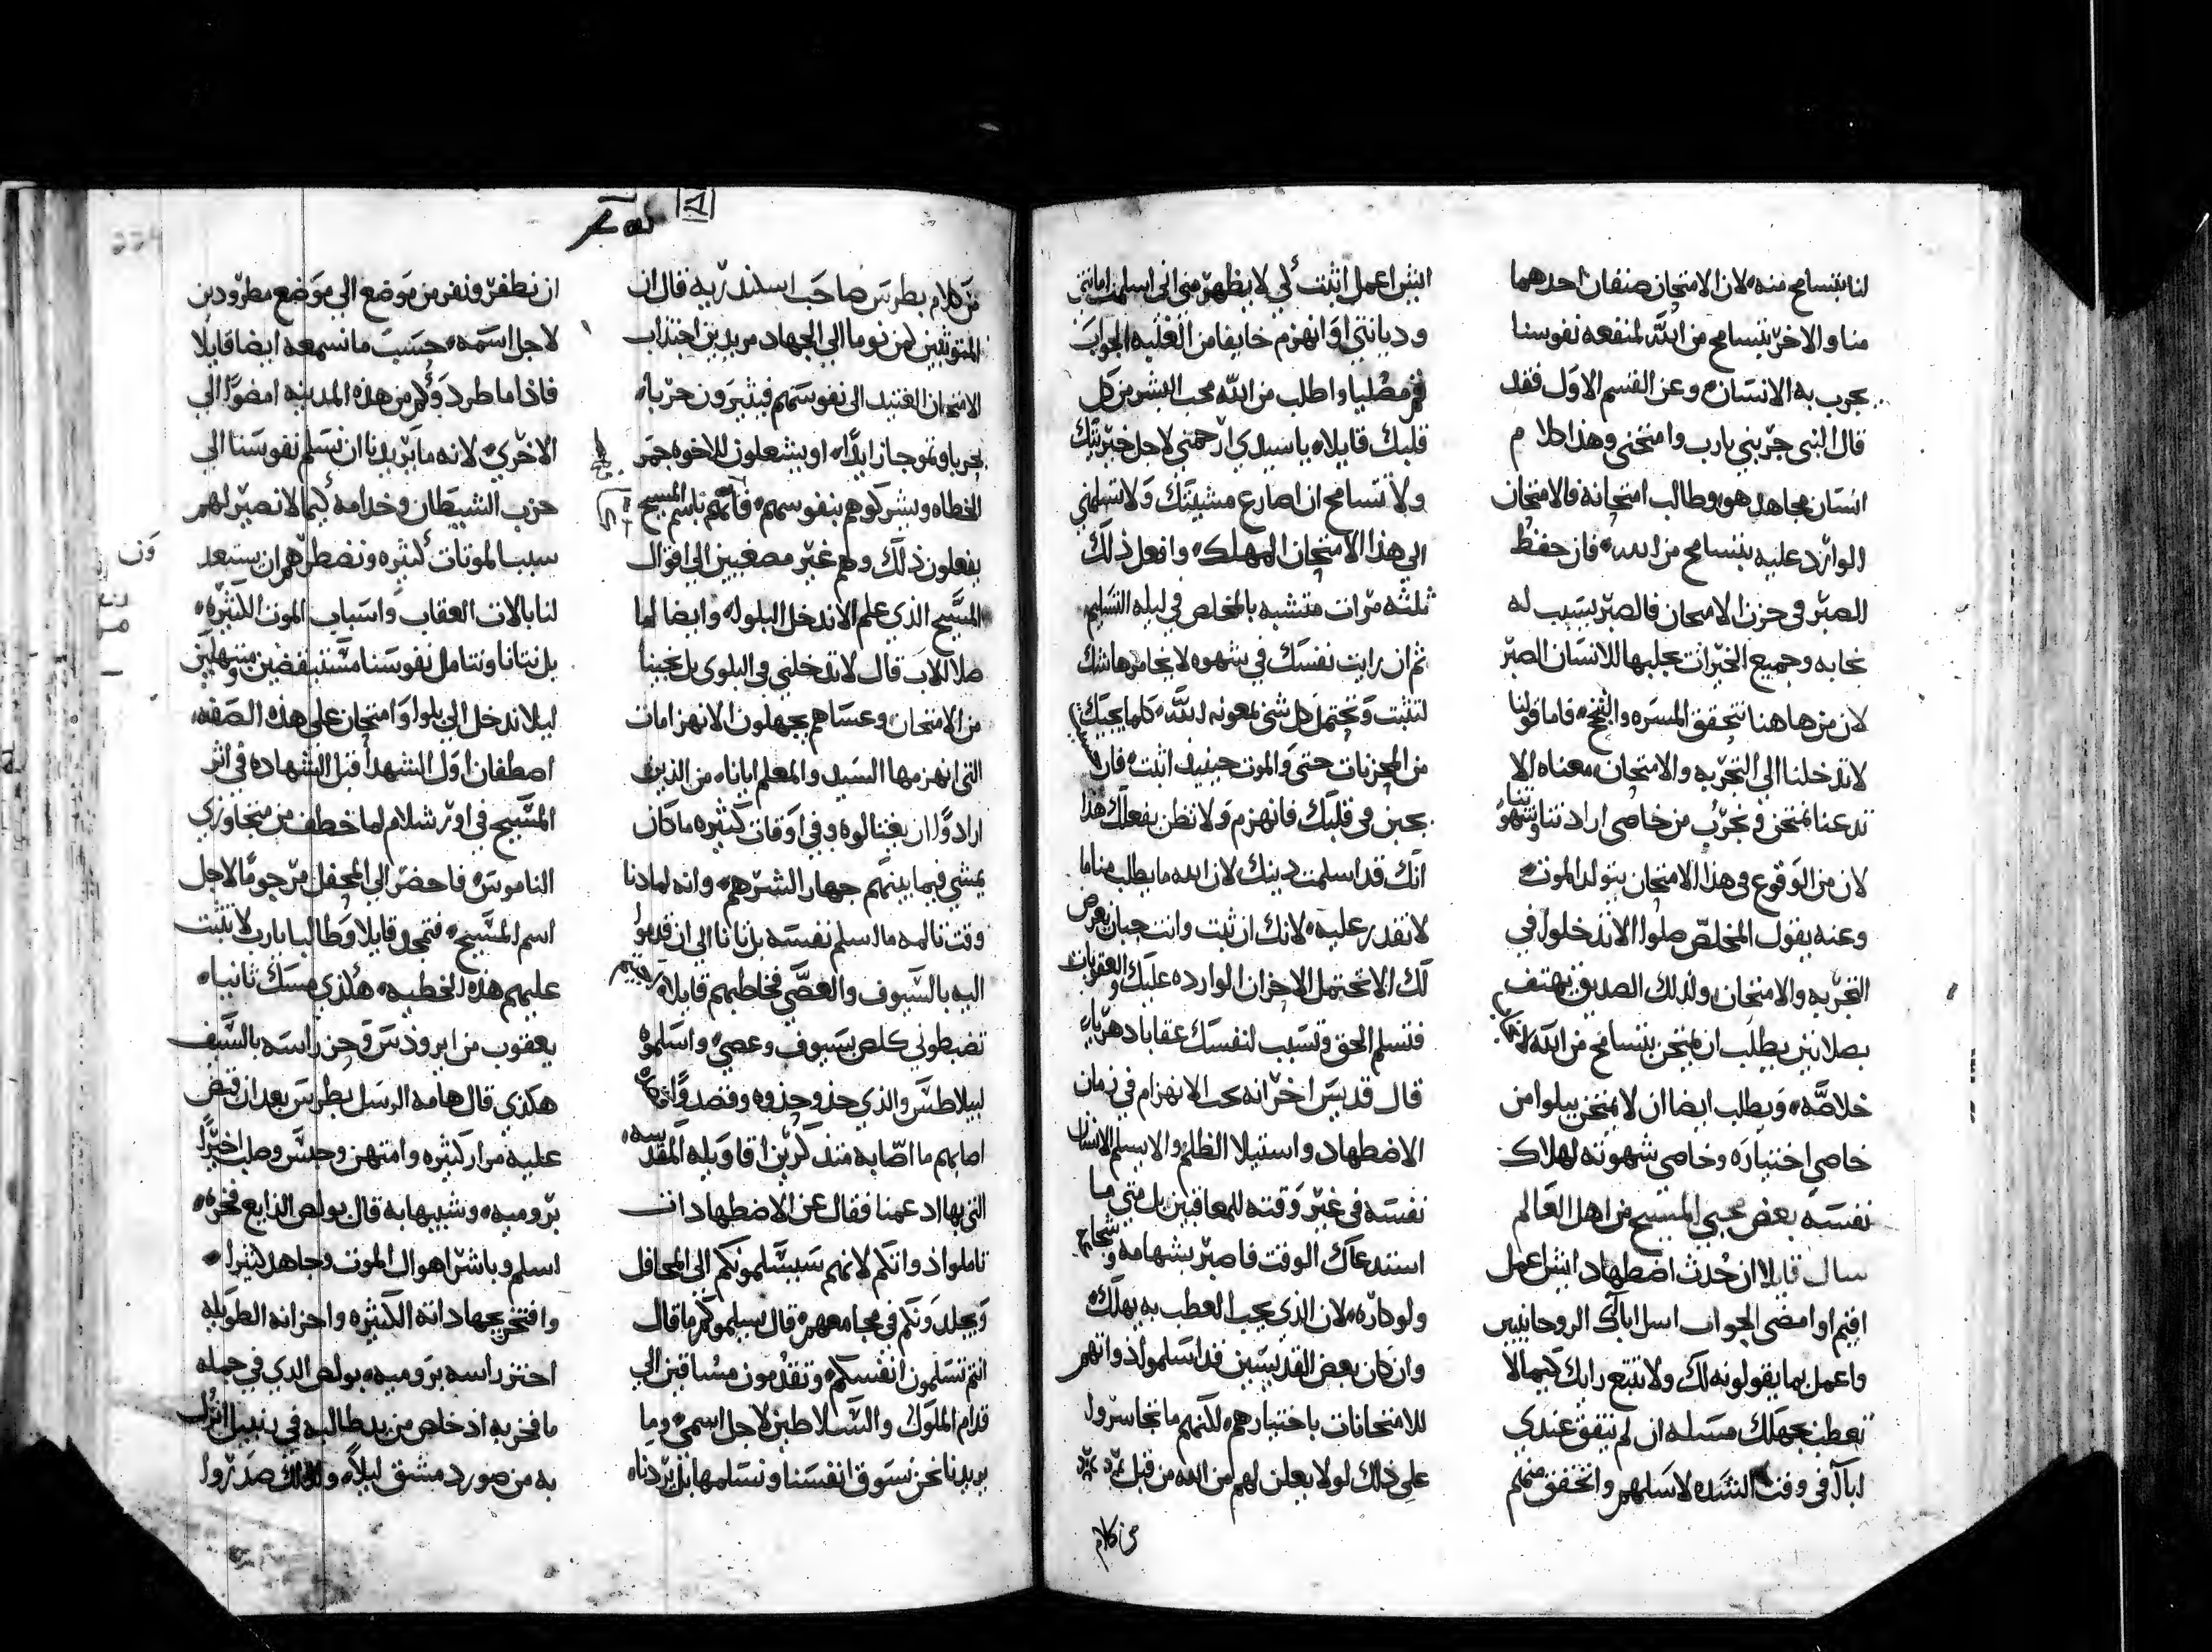 لنا بتسامح منه، لان الامتحان صنفان احدهما
منا والاخر بتسامح من الله لمنفعه نفوسنا
يجرب به الانسان، وعن القسم الاول فقد
قال النبى جربني يارب وامتحنى وهذا كلام
انسان مجاهد هو وطالب امتحانه فالامتحان
الوارد عليه بتسامح من الله، فان حفظ
الصبر فى حزن الامتحان فالصبر يسبب له
نجابه وجميع الخيرات يجلبها للانسان الصبر
لان من هاهنا تتحقق المسره والنجح، فاما قولنا
لا تدخلنا الى التجربه والامتحان معناه الا
تدعنا نمتحن ونجرب من خاصى ارادتنا وشهوتنا
لان من الوقوع فى هذا الامتحان يتولد الموت،
وعنه يقول المخلص صلوا الا تدخلوا في
التجربه والامتحان ولذلك الصديق يهتف
بصلاتين يطلب ان يمتحن بتسامح من الله
خلاصه، ويطلب ايضا ان لا يمتحن ببلوا من
خاصى اختياره وخاصى شهوته لهلاك
نفسه بعض محبي المسيح من اهل العالم
سال قايلا ان حدث اضطهاد ايش اعمل
اقيم او امضى الجواب اسل اباك الروحانيين
واعمل بما يقولونه لك ولا تتبع رايك كيما لا
تعطب بجهلك مسله ان لم يتفق عندي
ابآ فى وقت الشده لاسلهم واتحقق منهم
ايش اعمل اثبت لي لا يظهر منى انى اسلمت امانتى
وديانتى او انهزم خايفا من الغلبه الجواب
قم مصليا واطلب من الله محب البشر من كل
قلبك قايلا، ياسيدي ارحمنى لاجل خيريتك
ولا تتسامح ان اصارع مشيتك ولا تسلمني
الى هذا الامتحان المهلك، وافعل ذلك
ثلثه مرات متشبه بالمخلص في ليله التسليم
ثم ان رايت نفسك في شهوه لا يخامرها شك
لتثبت وتحتمل كل شى بمعونه الله، كلما يجيك
من المحزنات حتى والموت حينيد اثبت، فان
يجبن فى قلبك فانهزم ولا تظن بفعلك هذا
انك قد اسلمت دينك لان الله ما يطلب منا ما
لا نقدر عليه، لانك ان ثبت وانت جبان يعرض
لك الا تحتمل الاحزان الوارده عليك والعقوبات
فتسلم الحق وتسبب لنفسك عقابا دهريا،
قال قديس اخر انه يجب الانهزام في زمان
الاضطهاد واستيلا الظلم والا يسلم الانسان
نفسه فى غير وقته للمعاقبين بل متى ما
استدعاك الوقت فاصبر بشهامه وشجاعه
ولو كاره، لان الذي يحب العطب به يهلك،
وان كان بعض القديسين قد اسلموا ذواتهم
للامتحانات باختيارهم، لكنهم ما تجاسروا
على ذلك لولا يعلن لهم من الله من قبل
من كلام
من كلام بطرس صاحب اسكندريه قال ان
المتوثبين لمن نوما الى الجهاد مريدين اجتذاب
الامتحان العتيد الى نفوسهم فيثيرون حربا،
بحريا وتموجا زايدا، او يشعلون للاخوه جمر
الخطاه ويشركوهم بنفوسهم، فانهم باسم المسيح
يفعلون ذلك وهم غير مصغيين الى اقوال
المسيح الذي علم الا ندخل البلوا، وايضا لما
صلا للاب قال لا تدخلني فى البلوى بل نجينا
من الامتحان وعساهم يجهلون الانهزامات
التى انهزمها السيد والمعلم ايانا، من الذين
ارادوا ان يغتالوه وفي اوقات كثيره ما كان
يمشي فيما بينهم جهارا لشرهم، وانه لما دنا
وقت تالمه ما اسلم نفسه بل تانا الى ان قدموا
اليه بالسيوف والعصي فخاطبهم قايلا،
تضبطوني كلص بسيوف وعصي، واسلموه
لبيلاطس والذي حذو حذوه وقصدوا
اصابهم ما اصابه متذكرين اقاويله المقدسه،
التى بها ادعمنا فقال عن الاضطهادات
تاملوا ذواتكم لانهم سيسلمونكم الى المحافل
ويجلدونكم في مجامعهم، قال يسلموكم ما قال
انتم تسلمون انفسكم، وتقدمون مساقين الى
قدام الملوك والسلاطين لاجل اسمي، وما
يريدنا نحن نسوق انفسنا ونسلمها بل يردنا،
ان نطفر ونفر من موضع الى موضع مطرودين
لاجل اسمه، حسب ما نسمعه ايضا قايلا
فاذا ما طردوكم من هذه المدينه امضوا الى
الاخرى، لانه ما يريدنا ان نسلم نفوسنا الى
حزب الشيطان وخدامه كيما لا نصير لهم
سببا لموتات كثيره ونضطرهم ان يستعد
لنا بالات العقاب واسباب الموت الكثيره،
بل نتانا ونتامل نفوسنا مستيقضين ومبتهلين
ليلا ندخل الى بلوا وامتحان على هذه الصفه،
اصطفان اول الشهدآ قبل الشهاده في اثر
المسيح في اورشلام لما خطف من متجاوزي
الناموس، فاحضر الى المحفل مرجوما لاجل
اسم المسيح، فتمجد قايلا وطالبا يارب لا تثبت
عليهم هذه الخطيه، هكذي مسك ثانيا،
يعقوب من ايرودس وجز راسه بالسيف
هكذي قال هامه الرسل بطرس بعد ان قبض
عليه مرار كثيره وامتهن وحبس وصلب اخيرا
برومیه، وشبيها به قال بولص الذايع فخره،
اسلم وباشر اهوال الموت وجاهد كثيرا،
وافتخر بجهاداته الكثيره واحزانه الطويله
احتز راسه بروميه، بولص الدي في جمله
ما فخر به اذ خلص من يد طالبه في زنبيل انزل
به من صور دمشق ليلا، ولذلك صدروا